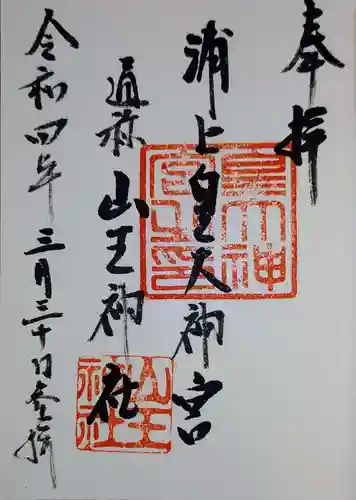 奉拝
浦上皇大神宮
通称 山王神社
令和四年三月三十日参拝
山王神社